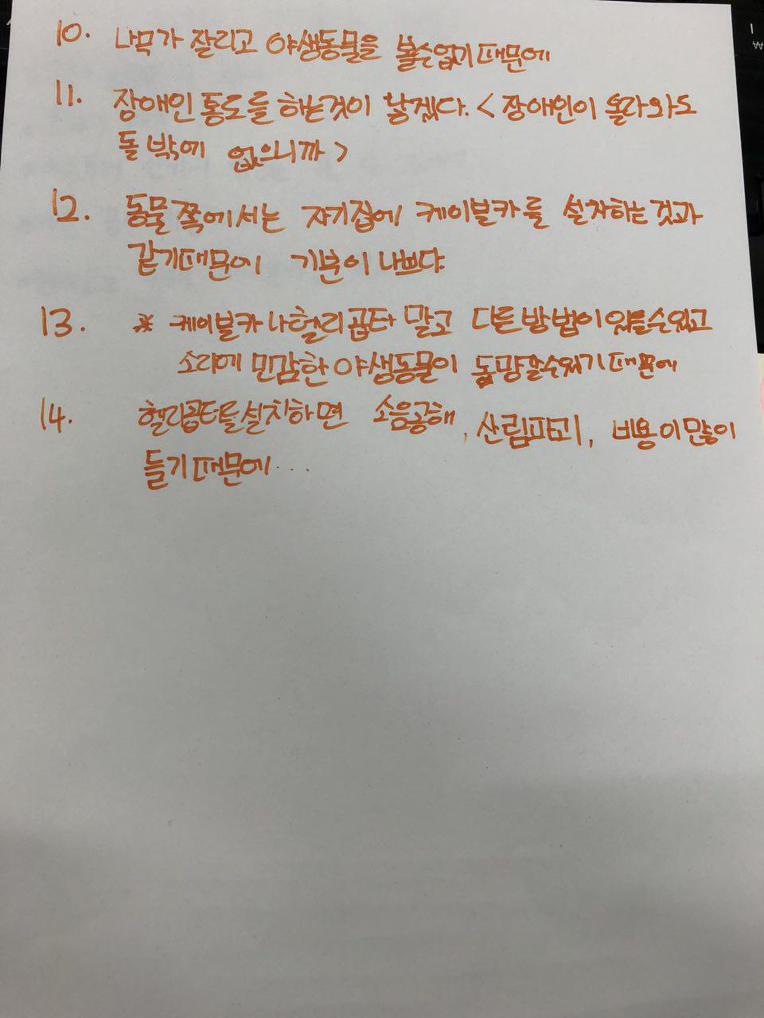 10. 나무가 잘리고 야생동물을 볼수없기때문에
11. 장애인 통로를 하는것이 낳겠다. < 장애인이 올라와도
돌 밖에 없으니까 >
12. 동물 쪽에서는 자기집에 케이블카를 설치하는 것과
같기때문에 기분이 나쁘다
13. ※ 케이블카나 헬리곱터 말고 다른방법이 있을수있고
소리에 민감한 야생동물이 도망갈수있기때문에
14. 헬리곱터를설치하면 소음공해, 산림파괴, 비용이많이
들기때문에...